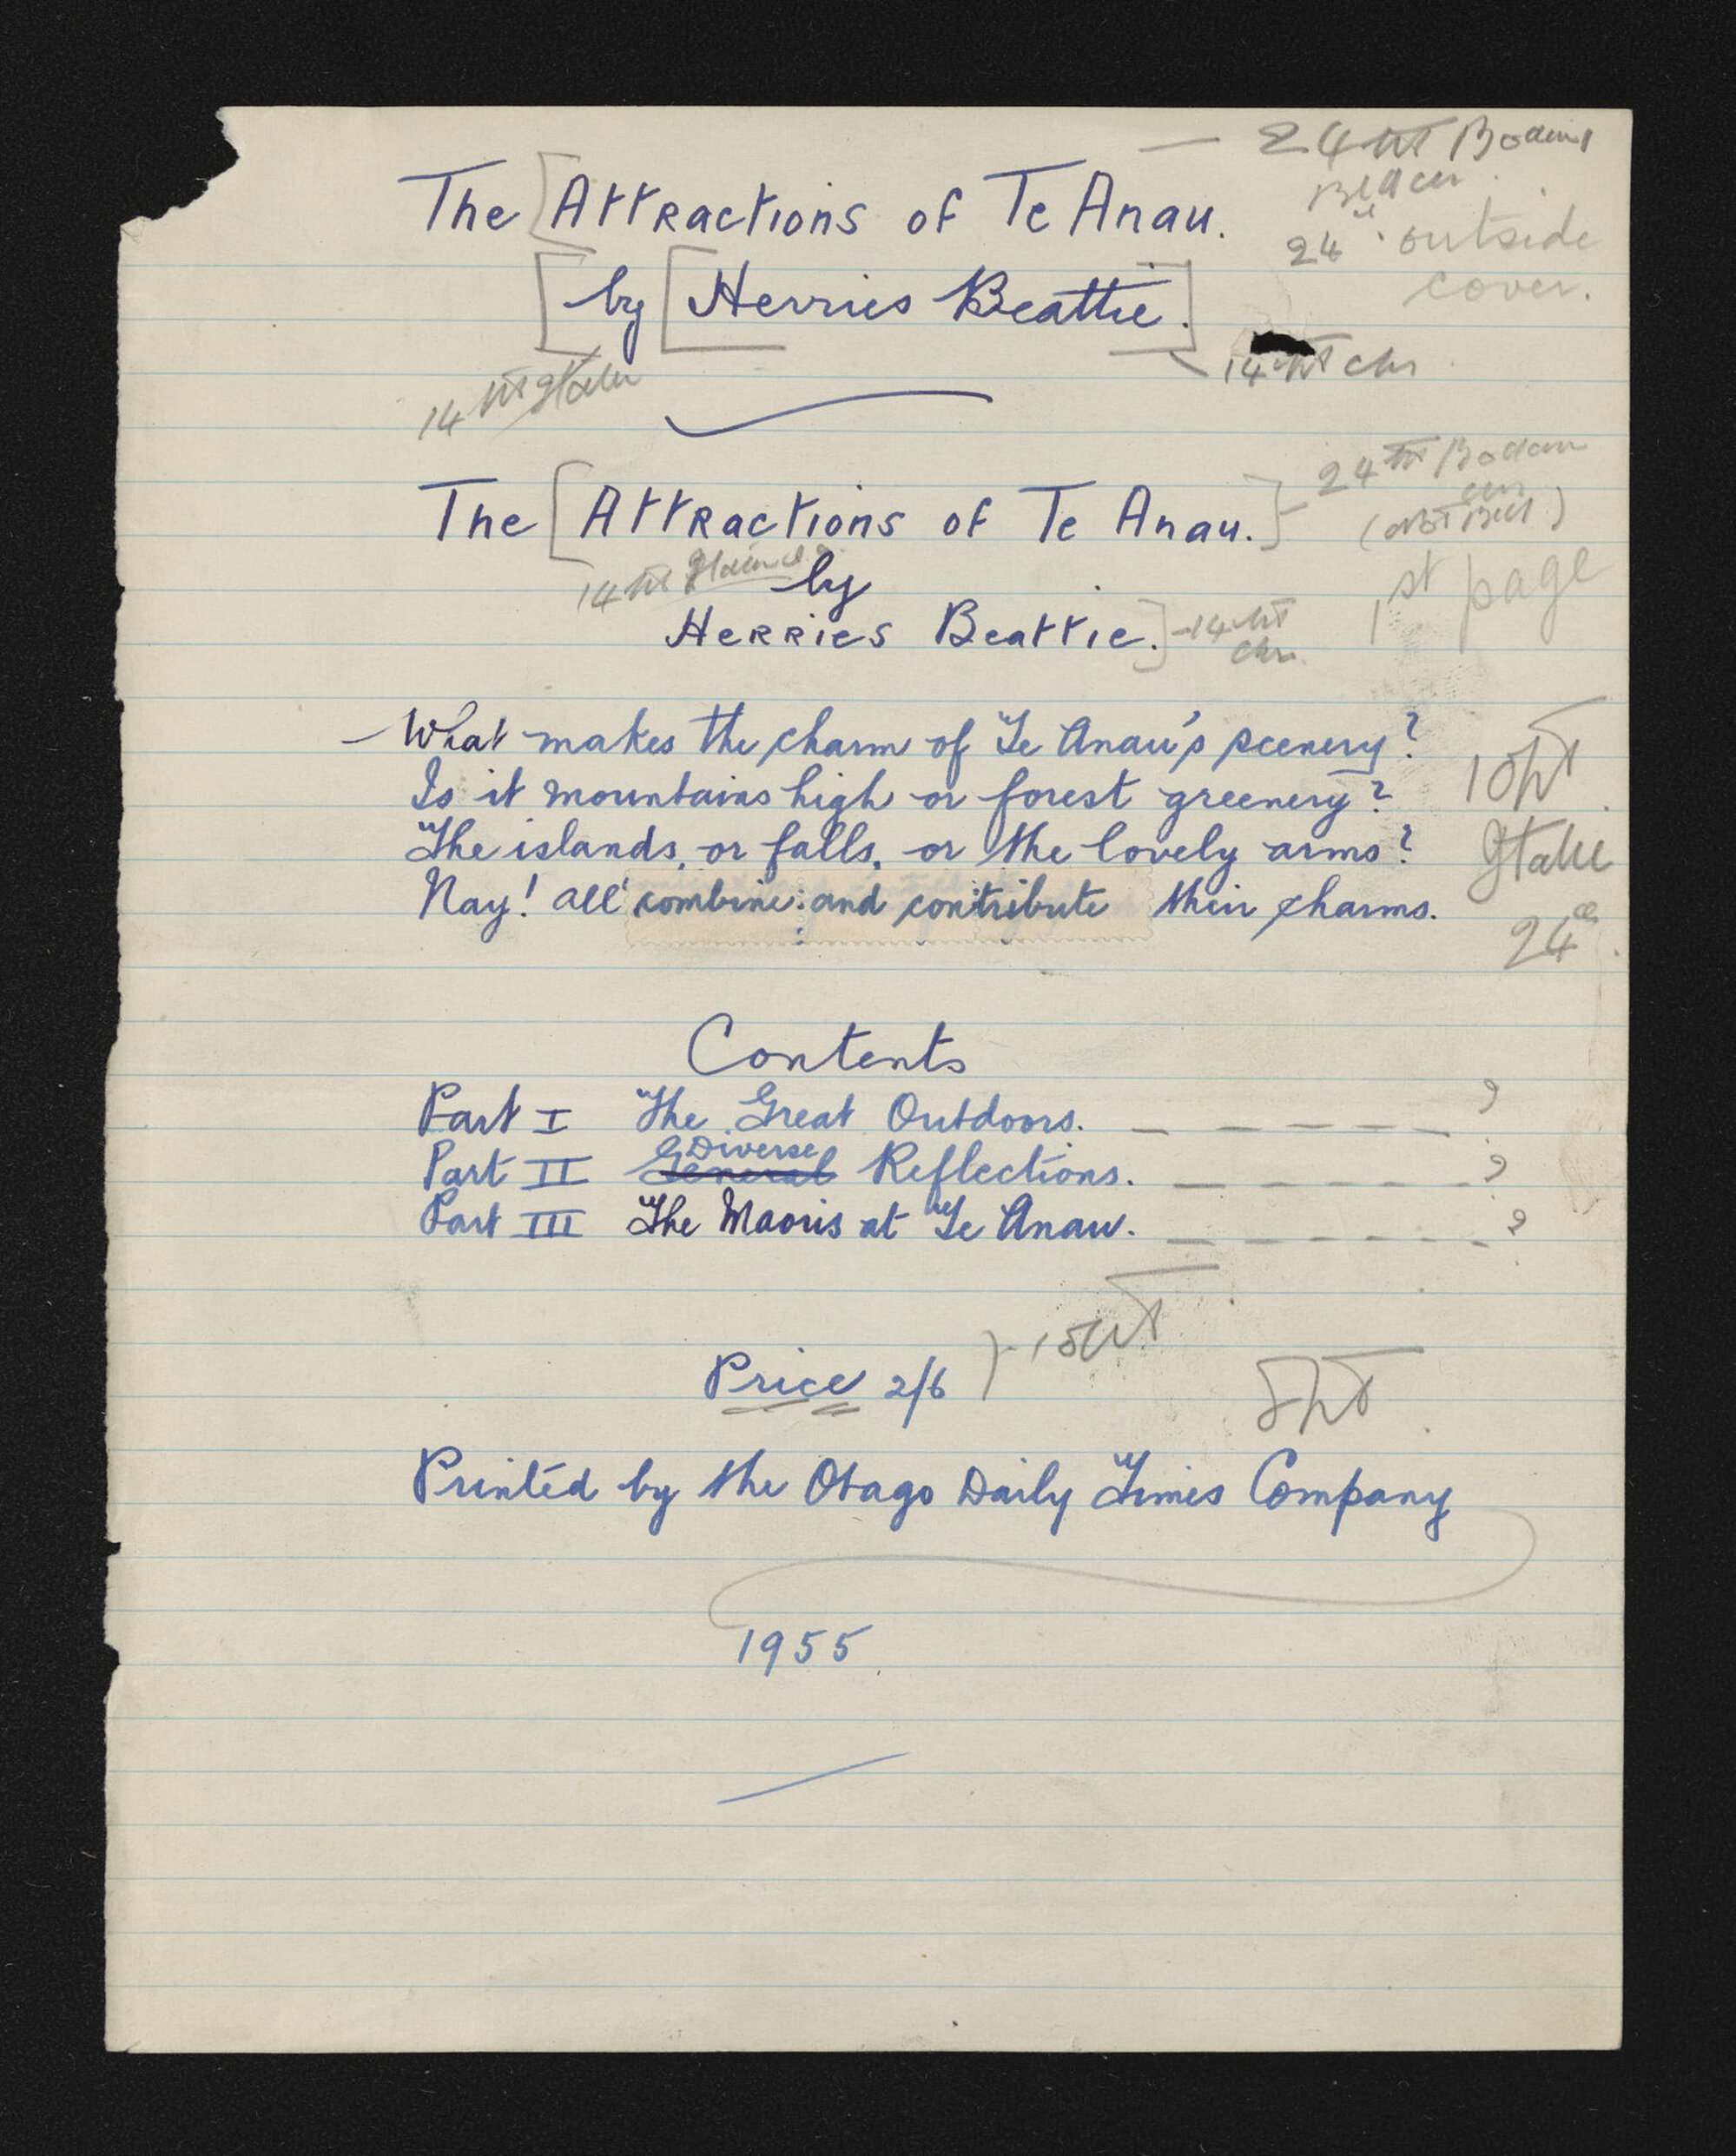 The [Attractions of Te Anau.
— 24 pt Bodoni
24 outside
cover.
[by [Herries Beattie.]
14 pt
14 pt chr
The [Attractions of Te Anau.]
24 pt
1st page
14 pt
by
Herries Beattie.] - 14 pt
What makes the charm of Te Anau's scenery?
Is it mountains high or forest greenery?
The islands, or falls, or the lovely arms?
Nay! all combine and contribute their charms.
10 pt
Itale
24
Contents
Part I The Great Outdoors. — — — — — ?
Part II General Diverse Reflections. — — — — — ?
Part III The Maoris at Te Anau. — — — — — ?
Price 2/6
8 pt
Printed by the Otago Daily Times Company
1955